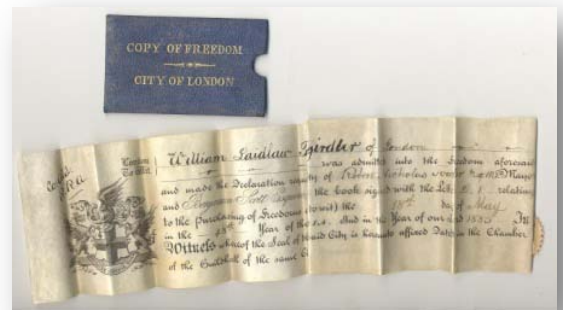 COPY OF FREEDOM
CITY OF LONDON
London
To Wit
William Laidlaw Girdler of London
was admitted into the Freedom aforesaid
and made the Declaration of Robert Nicholas Fowler Mayor
and Benjamin Scott the book signed with the Letter relating
to the Purchasing of Freedoms (to wit) the 18th Day of May
in the 48th Year of And in the Year of our 1885 In
Witness whereof the Seal of the said City is hereunto affixed Dated in the Chamber
of the Guildhall of the same City